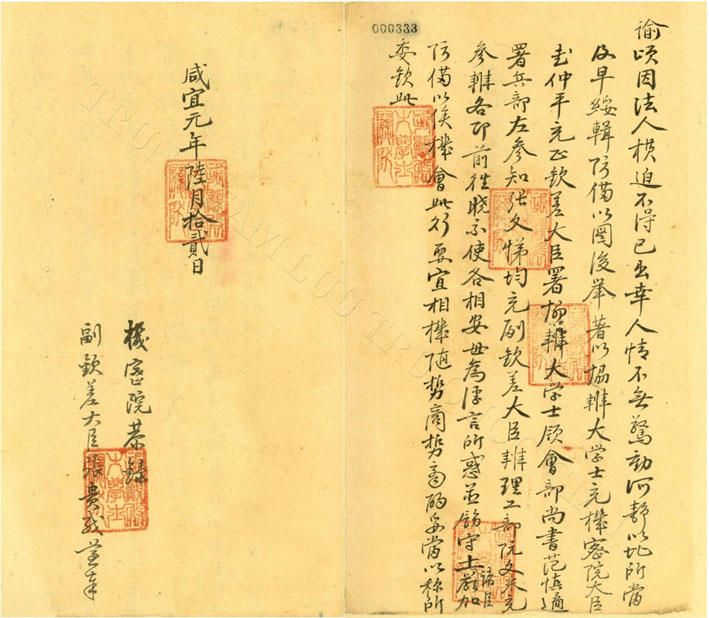 000333
諭頃因法人橫迫不得已出幸人情不無驚動河靜以北所當
及早綏輯防備以圖後舉著以協辦大学士充機密院大臣
武仲平充正欽差大臣署協辦大学士領部尚書范慎遹
署兵部左參知張文悌均充副欽差大臣辦理工部阮文充
參辦各即前往曉示使各相安毋為浮言所惑並飭守土諸臣嚴加
防備以俟機會此行要宜相機随勢商酌妥當以称所
委欽此
咸宜元年陸月拾貳日
機密院恭錄
副欽差大臣張貴奉